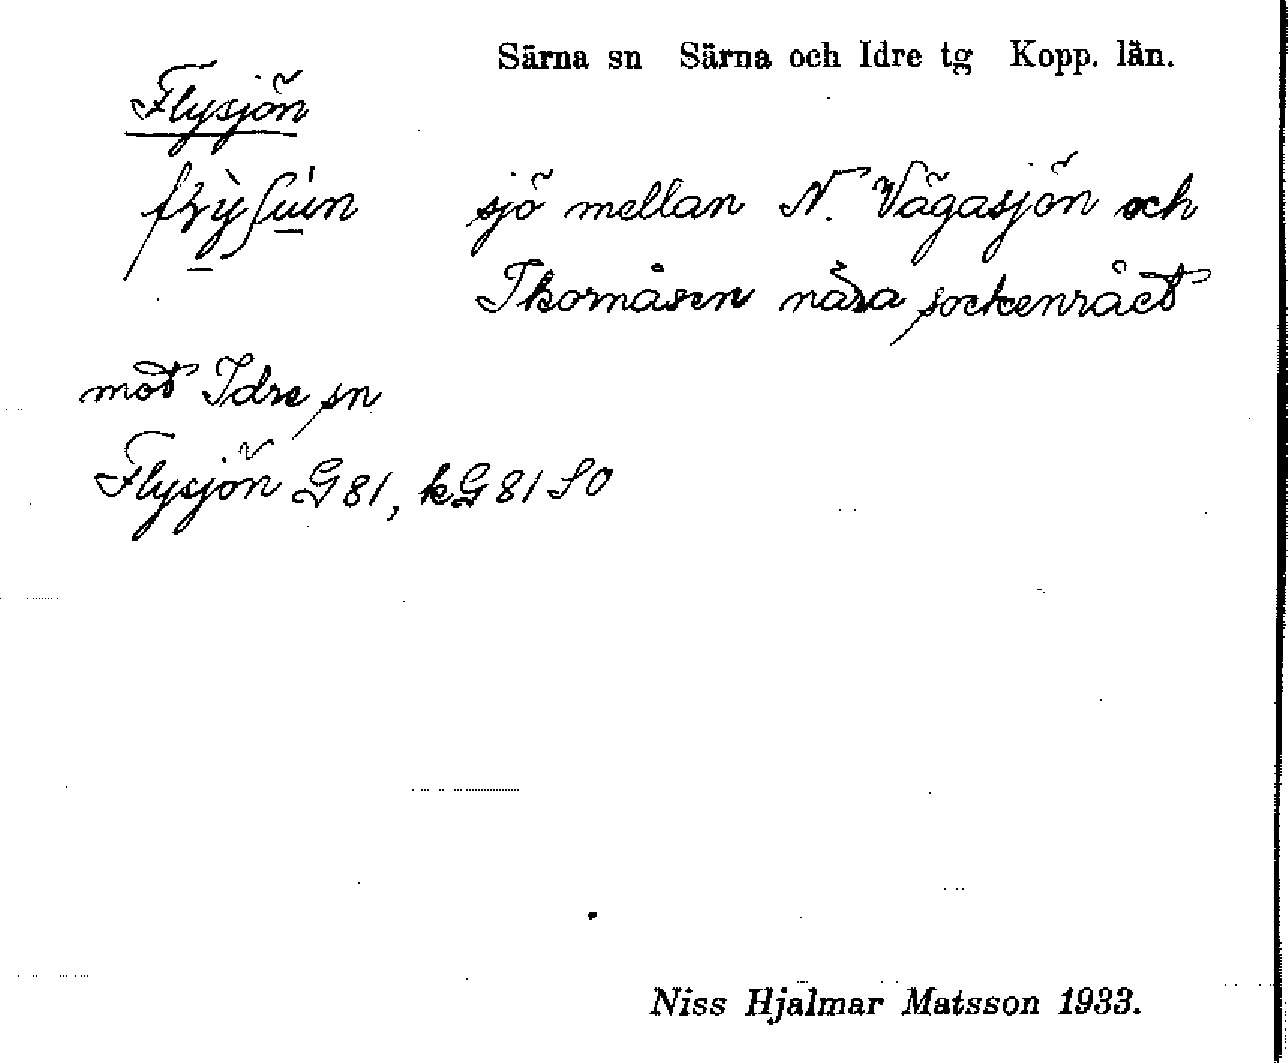 Särna sn Särna och Idre tg Kopp. län.
Flysjön
sjö mellan N. Vägasjön och
Thomåsen nära sockenrået
mot Idre sn
Flysjön G 81, kG 81 SO
Niss Hjalmar Matsson 1933.